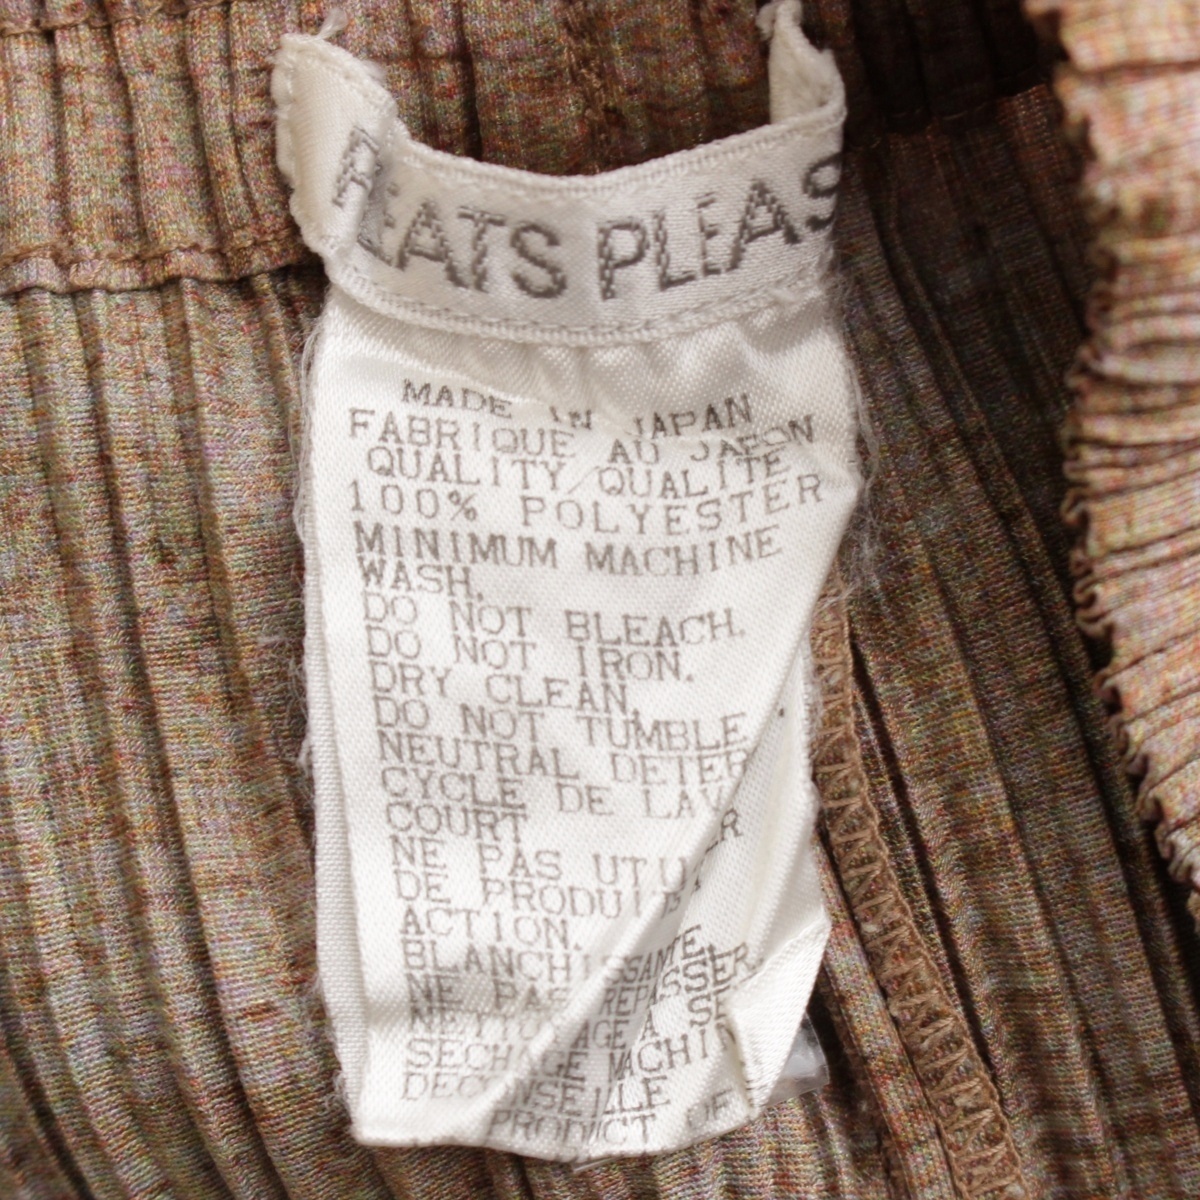 PLEATS PLEAS
MADE IN JAPAN
FABRIQUE AU JAPON
QUALITY/QUALITE
100% POLYESTER
MINIMUM MACHINE
WASH.
DO NOT BLEACH.
DO NOT IRON.
DRY CLEAN.
DO NOT TUMBLE
NEUTRAL DETER
CYCLE DE LAV
COURT
NE PAS
DE PRODUI
ACTION.
BLANCHISSANTE.
NE PAS REPASSER
NETTOYAGE A SE
SECHAGE MACHIN
DECONSEILLE
PRODUCT OF